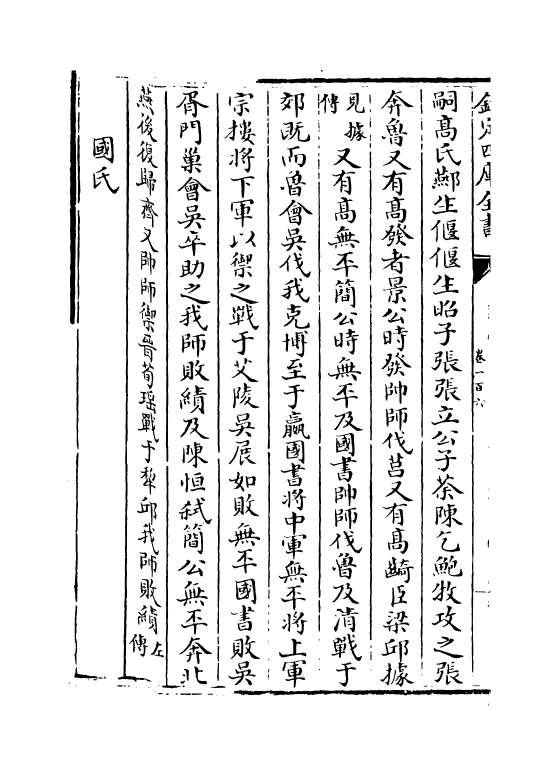 欽定四庫全書
卷一百六
嗣高氏酀生偃偃生昭子張張立公子荼陳乞鮑牧攻之張
奔魯又有高發者景公時發帥師伐莒又有高齮臣梁邱據
見據傳又有高無丕簡公時無丕及國書帥師伐魯及清戰于
郊既而魯會吳伐我克博至于嬴國書將中軍無丕將上軍
宗樓將下軍以禦之戰于艾陵吳展如敗無丕國書敗吳
胥門巢會吳卒助之我師敗績及陳恒弑簡公無丕奔北
燕後復歸齊又帥師禦晉荀瑶戰于犂邱我師敗績左傳
國氏